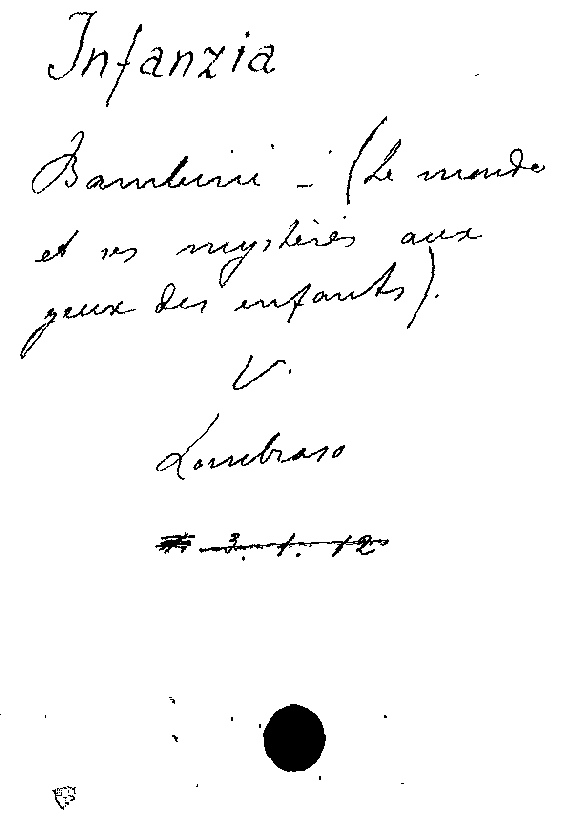 Infanzia
Bambini - (Le monde
et ses mystères aux
yeux des enfants).
V.
Lombroso
3. 1. 12